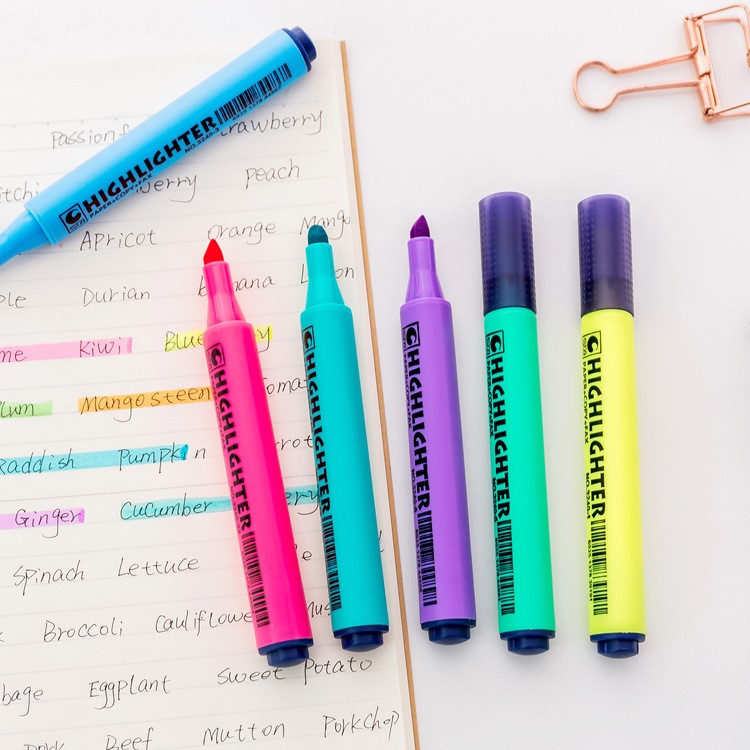 Passionf rawberry
itchi berry peach
Apricot Orange Mango
Durian
me Kiwi Blue
lum Mangosteen Tomat
Raddish Pumpkin
Ginger Cucumber
Spinach Lettuce
Broccoli Cauliflowe
bage Eggplant sweet potato
Pork Beef Mutton Porkchop
HIGHLIGHTER
PAPER•COPY•FAX
HIGHLIGHTER
HIGHLIGHTER
HIGHLIGHTER
HIGHLIGHTER
PAPER•COPY•FAX
HIGHLIGHTER
PAPER•COPY•FAX